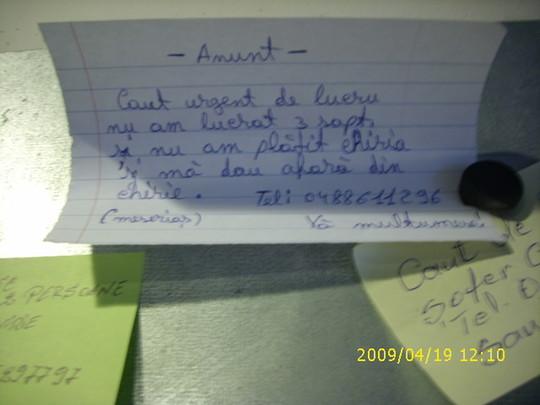 — Anunt —
Caut urgent de lucru
nu am lucrat 3 sapt.
și nu am plătit chiria
și mă dau afară din
chirie. Tel: 0488611296
(meseriaș) Vă multumesc
PERSOANE
Caut de
Sofer
Tel. 0
sau
2009/04/19 12:10